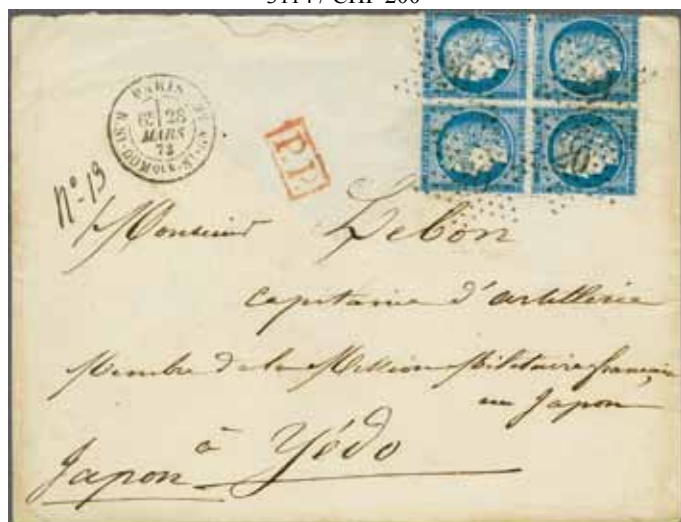 31147 CHF 200
PARIS
6E 28
MARS
73
R. St-DOMque-St-Gn
P.P.
20
N° 13
Monsieur Lebon
capitaine d'artillerie
Membre de la Mission Militaire française
au Japon
à Yédo
Japon